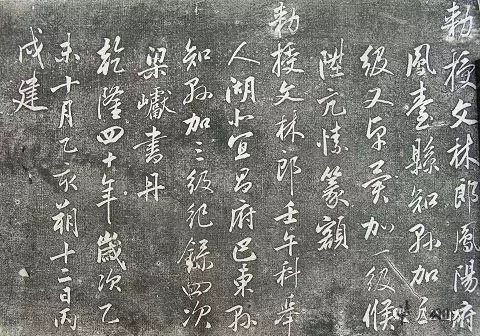 勅授文林郎鳳陽府
鳳臺縣知縣加五
級又卓異加一級候
陞亢愫篆額
勅授文林郎壬午科舉
人湖北宜昌府巴東縣
知縣加三級紀錄四次
梁巘書丹
乾隆四十年歲次乙
未十月乙亥朔十二日丙
戌建